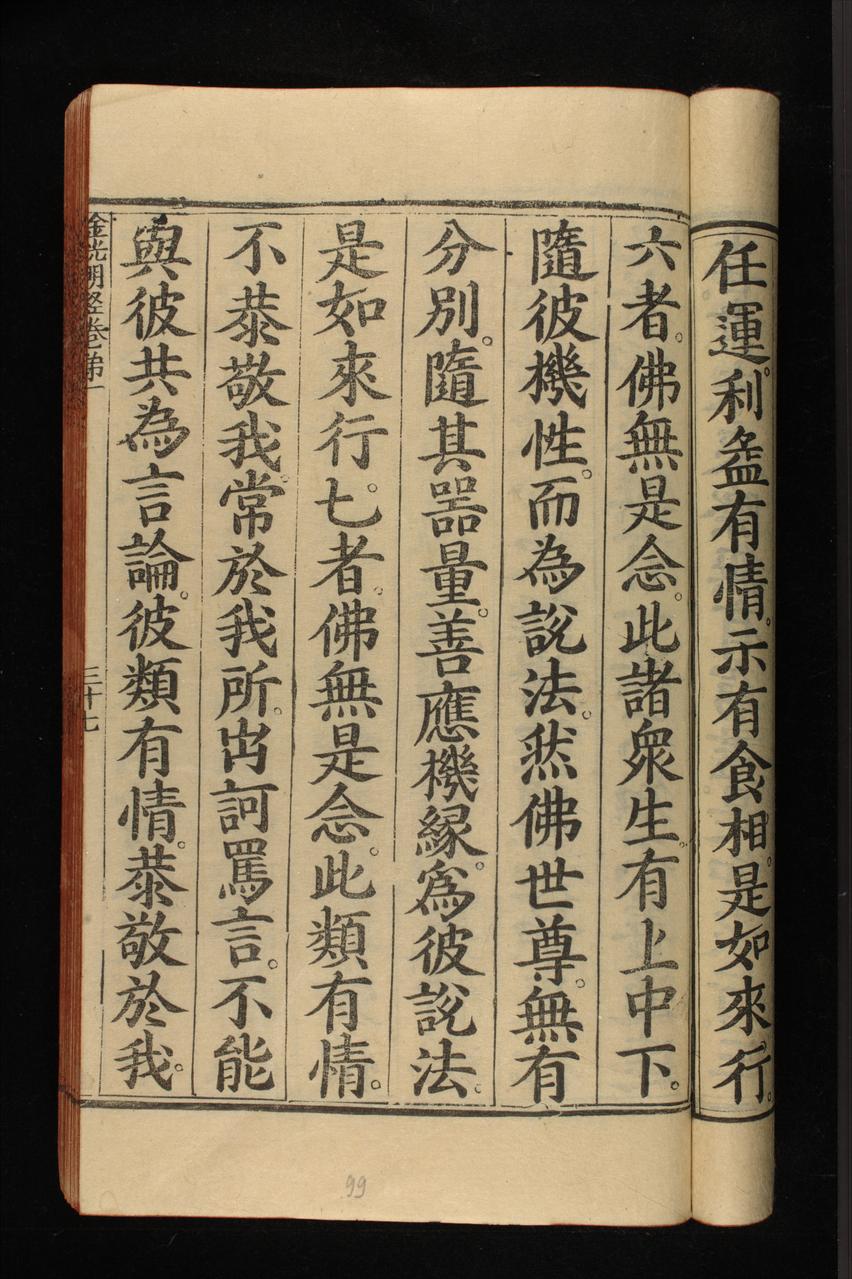 任運。利益有情。示有食相。是如來行。
六者。佛無是念。此諸衆生。有上中下。
隨彼機性。而為說法。然佛世尊。無有
分別。隨其器量。善應機緣。為彼說法。
是如來行。七者。佛無是念。此類有情。
不恭敬我。常於我所。出訶罵言。不能
與彼共為言論。彼類有情。恭敬於我。
金光明經卷第一
三十七
99